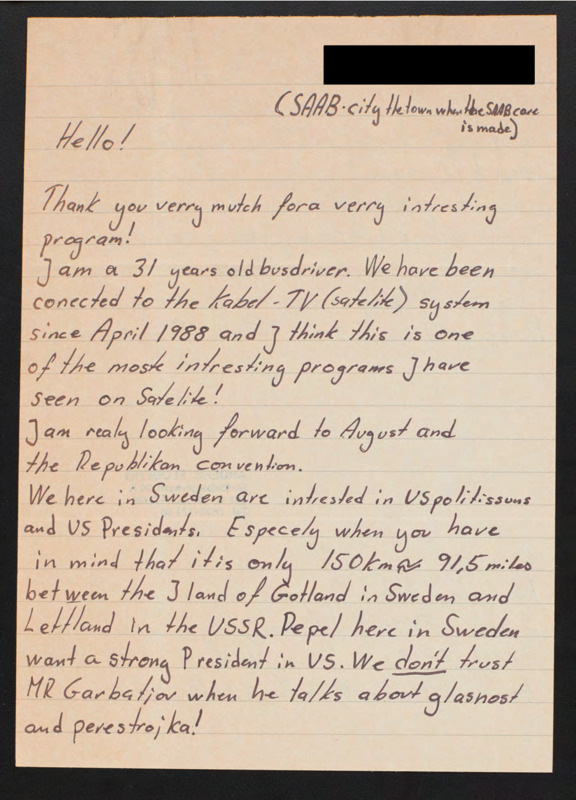 (SAAB-city the town when the SAAB care
is made)
Hello!
Thank you verry mutch for a verry intresting
program!
I am a 31 years old busdriver. We have been
conected to the Kabel-TV (satelite) system
since April 1988 and I think this is one
of the moste intresting programs I have
seen on Satelite!
I am realy looking forward to August and
the Republikan convention.
We here in Sweden are intrested in US politissuns
and US Presidents. Especely when you have
in mind that it is only 150km≈ 91,5 miles
between the Iland of Gotland in Sweden and
Lettland in the USSR. Pepel here in Sweden
want a strong President in US. We don't trust
MR Garbatjov when he talks about glasnost
and perestrojka!